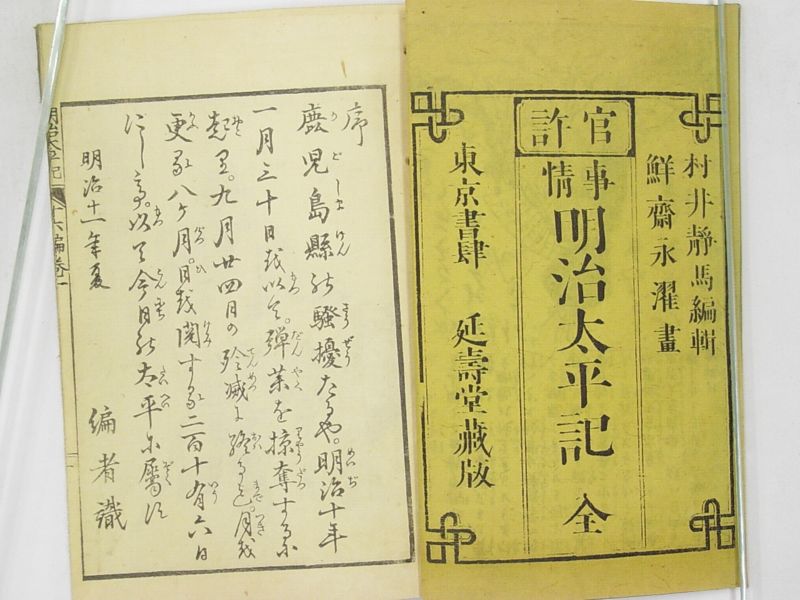 村井靜馬編輯
鮮齋永濯畫
官許
事情
明治太平記 全
東京書肆 延壽堂藏版
序
鹿児島縣の騒擾たるや。明治十年
一月三十日を以て。弾薬を掠奪するに
起り。九月廿四日の殄滅に終る。月を
更る八ヶ月。日を閲する二百十有六日
にし て。以て今日の太平に屬す
明治十一年夏
編者識
明治太平記 十六編巻一